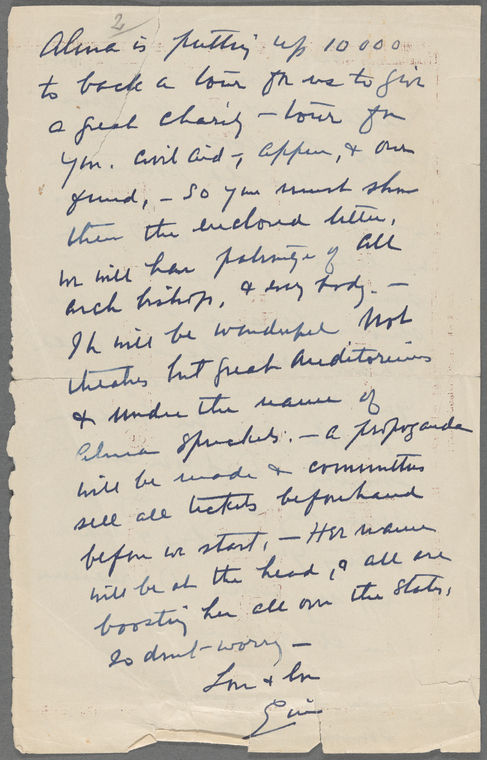 2
Alma is putting up 10000
to back a tour for us to give
a great charity - tour for
you. Civil aid -, & our
fund, - So you must show
them the enclosed letter,
we will have patronage of all
arch bishops, & every body. -
It will be wonderful Not
theatres but great Auditoriums
& under the name of
Alma Spreckels. - a propoganda
will be made & committees
sell all tickets beforehand
before we start, - Her name
will be at the head, & all are
boosting her all over the States,
So dont - worry -
Love & love